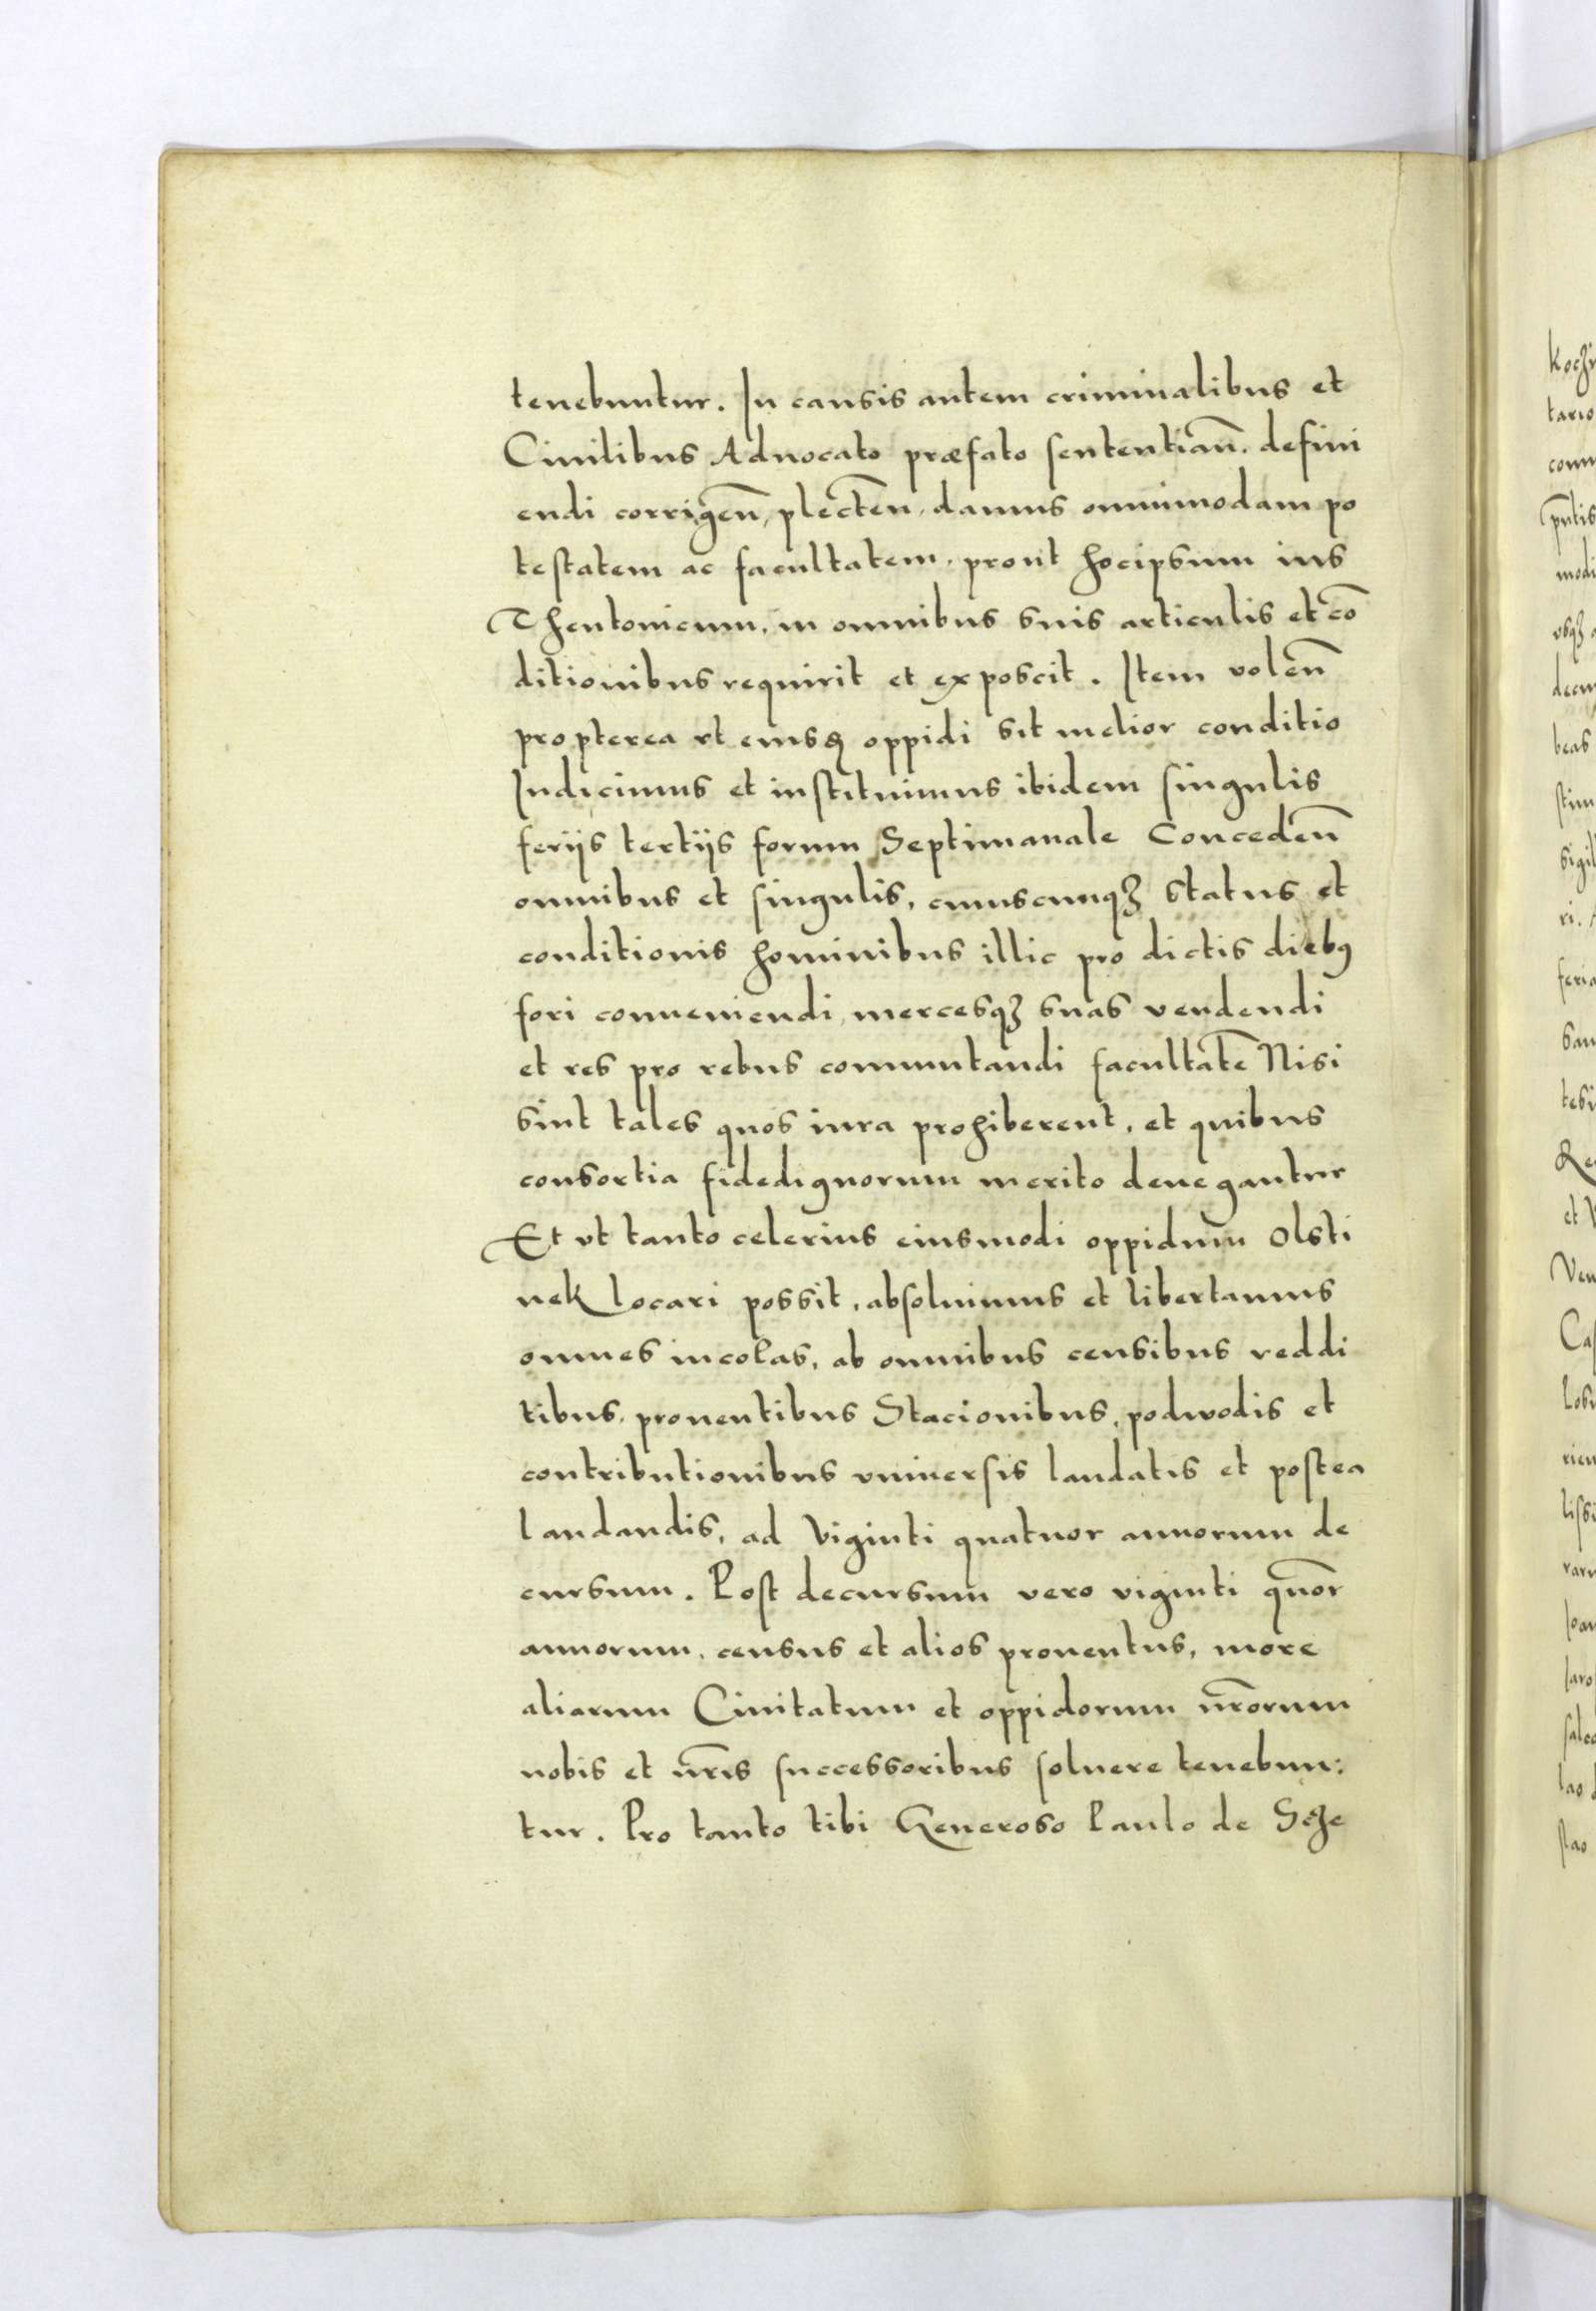 tenebuntur. In causis autem criminalibus et
Ciuilibus Aduocato præfato sententian̄. defini
endi corrigen̄, plecten̄, damus omnimodam po
testatem ac facultatem, prout hocipsum ius
Theutonicum, in omnibus suis articulis et cō
ditionibus requirit et exposcit. Item volen̄
propterea vt eiusꝗ oppidi sit melior conditio
Indicimus et instituimus ibidem singulis
feriis tertiis forum Septimanale Conceden̄
omnibus et singulis, cuiuscunqꝫ status et
conditionis hominibus illic pro dictis diebꝰ
fori conueniendi, mercesqꝫ suas vendendi
et res pro rebus commutandi facultatē Nisi
sint tales quos iura prohiberent, et quibus
consortia fidedignorum merito denegantur
Et vt tanto celerius eiusmodi oppidum Olsti
nek locari possit, absoluimus et libertamus
omnes incolas, ab omnibus censibus reddi
tibus, prouentibus Stacionibus, podwodis et
contributionibus vniuersis laudatis et postea
laudandis, ad Viginti quatuor annorum de
cursum. Post decursum vero viginti quōr
annorum, census et alios prouentus, more
aliarum Ciuitatum et oppidorum nr̄orum
nobis et nr̄is successoribus soluere tenebun:
tur. Pro tanto tibi Generoso Paulo de Scze